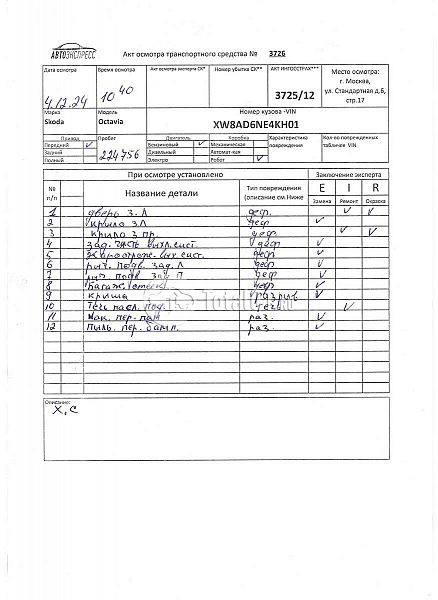 АВТОЭКСПРЕСС
Акт осмотра транспортного средства № 3726
Дата осмотра Время осмотра Акт осмотра эксперта СК* Номер убытка СК** АКТ ИНГОССТРАХ*** Место осмотра:
4.12.24 10 40 3725/12 г. Москва,
ул. Стандартная д.6,
стр.17
Марка Модель Номер кузова -VIN
Skoda Octavia XW8AD6NE4KH01
Привод Пробег Двигатель Коробка Характеристика Кол-во поврежденных
Передний ✓ 224756 Бензиновый ✓ Механическая повреждения табличек VIN
Задний Дизельный Автомат-кая
Полный Электро Робот ✓
№ При осмотре установлено Заключение эксперта
п/п Название детали Тип повреждения E I R
(описание см.Ниже Замена Ремонт Окраска
1 дверь З.Л деф. ✓ ✓
2 крыло ЗЛ деф ✓
3 крыло З пр. деф. ✓ ✓
4 зад. часть выхл.сист. деф ✓
5 вых. сист. деф. ✓
6 рыч. подв. зад. Л деф ✓
7 рыч. подв зад П деф ✓
8 Багаж. отсек деф ✓
9 крыша разрыв ✓
10 Течь масл. под. течь ✓
11 Мак. пер. раз. ✓
12 Пыль. пер. бамп. раз. ✓
Описание:
Х,С